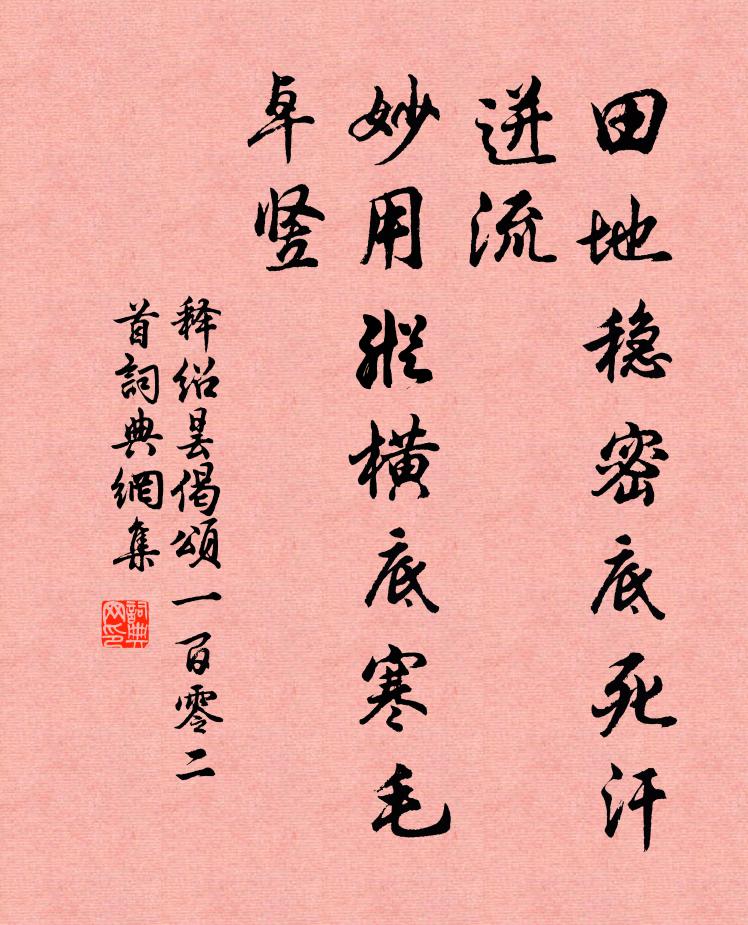 田地稳密底死汗
迸流
妙用縱橫底寒毛
卓竖
释绍昙偈頌一百零二
首詞典網集
詞典
网印